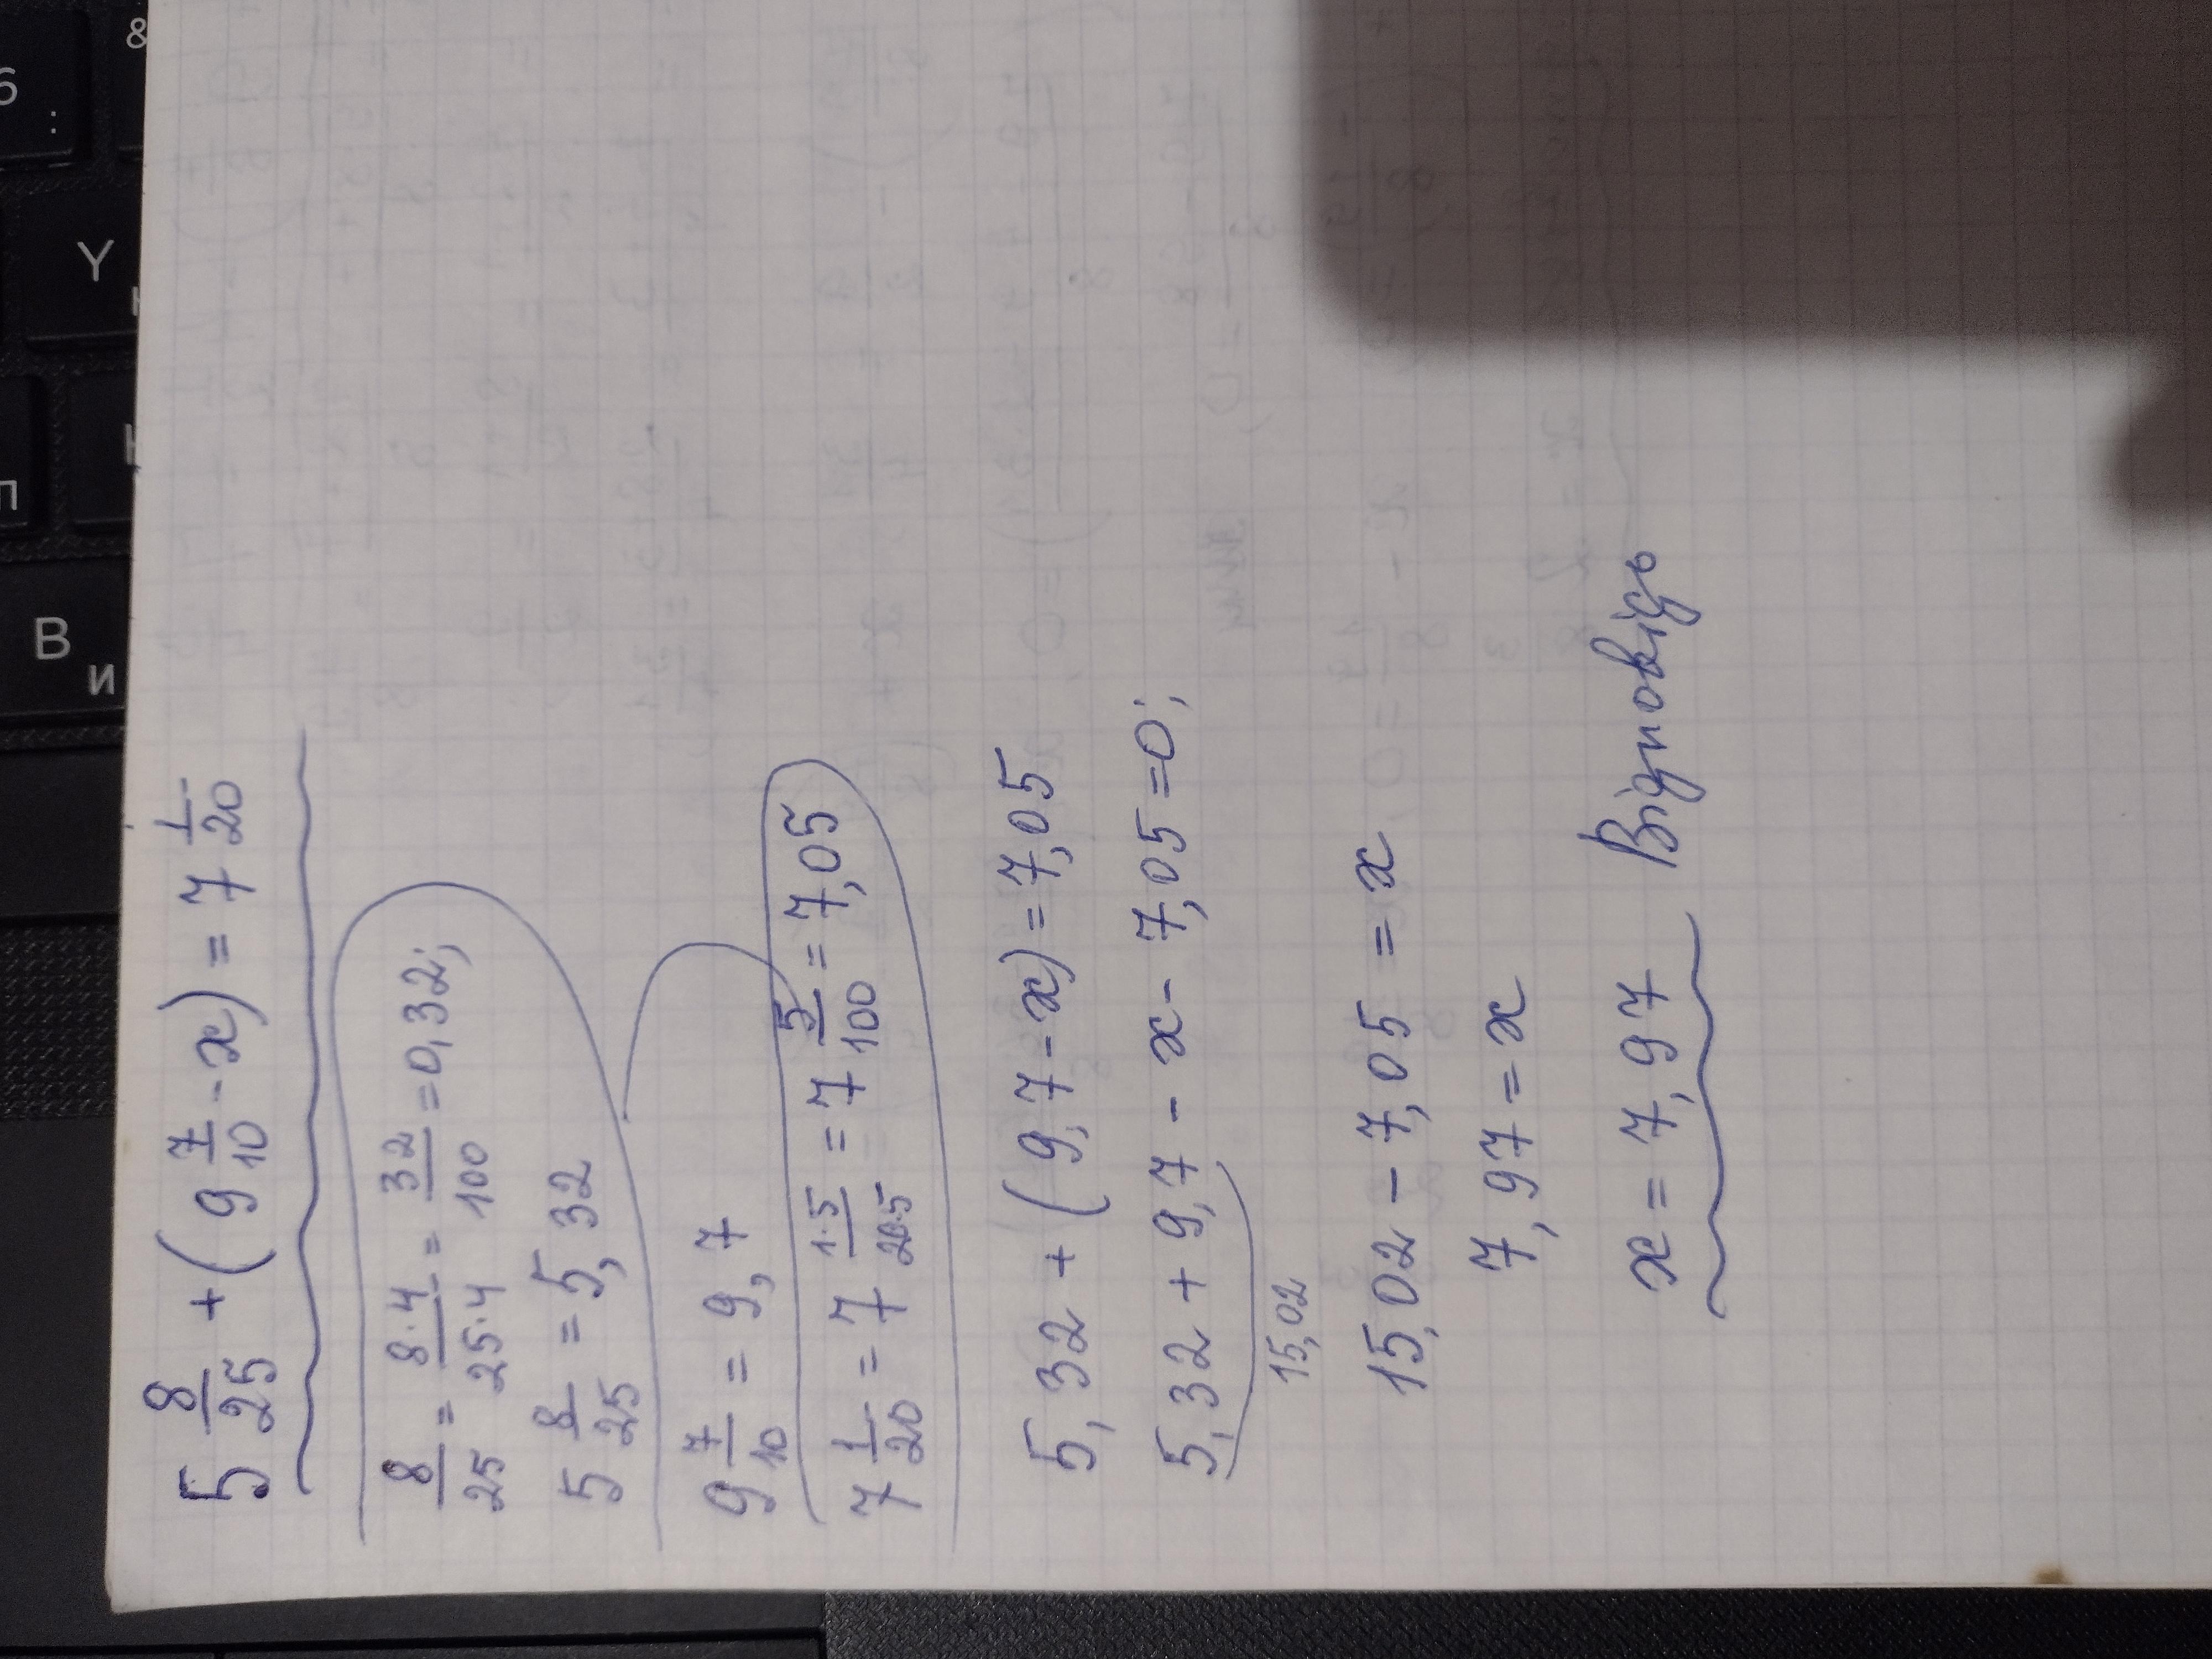 5 8/25 + (9 7/10 - x) = 7 1/20
8/25 = 8·4/25·4 = 32/100 = 0,32;
5 8/25 = 5,32
9 7/10 = 9,7
7 1/20 = 7 1·5/20·5 = 7 5/100 = 7,05
5,32 + (9,7 - x) = 7,05
5,32 + 9,7 - x - 7,05 = 0;
15,02
15,02 - 7,05 = x
7,97 = x
x = 7,97 Відповідь
6
:
&
Y
П
В
И